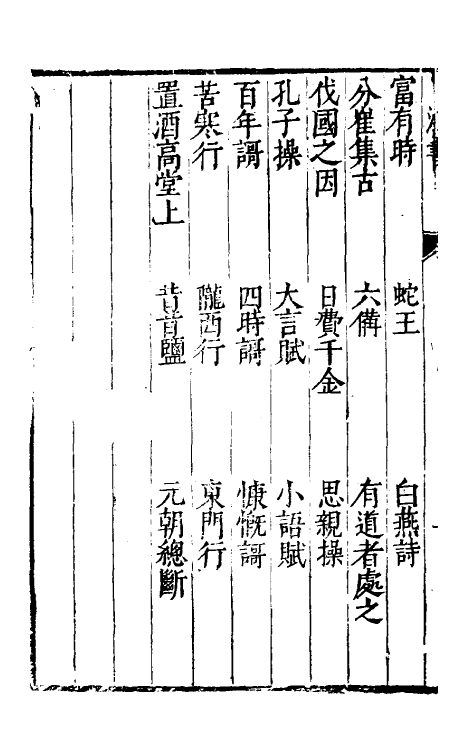 富有時　蛇王　白燕詩
分崔集古　六備　有道者處之
伐國之因　日費千金　思親操
孔子操　大言賦　小語賦
百年謌　四時謌　慷慨謌
苦寒行　隴西行　東門行
置酒高堂上　昔昔鹽　元朝總斷